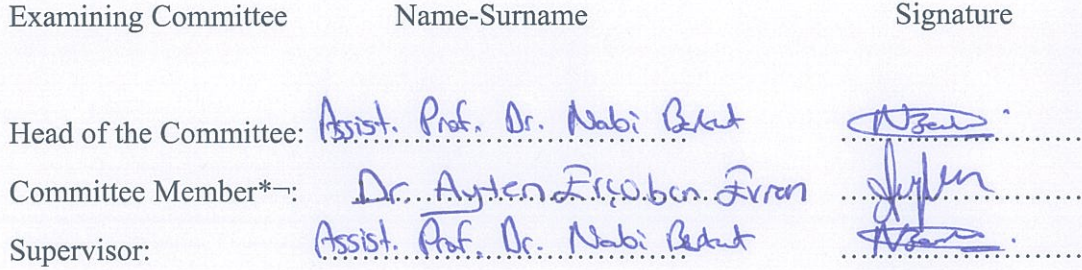 Examining Committee Name-Surname Signature
Head of the Committee: Assist. Prof. Dr. Nabi Berkut
Committee Member*¬: Dr. Ayten Erçoban Evran
Supervisor: Assist. Prof. Dr. Nabi Berkut